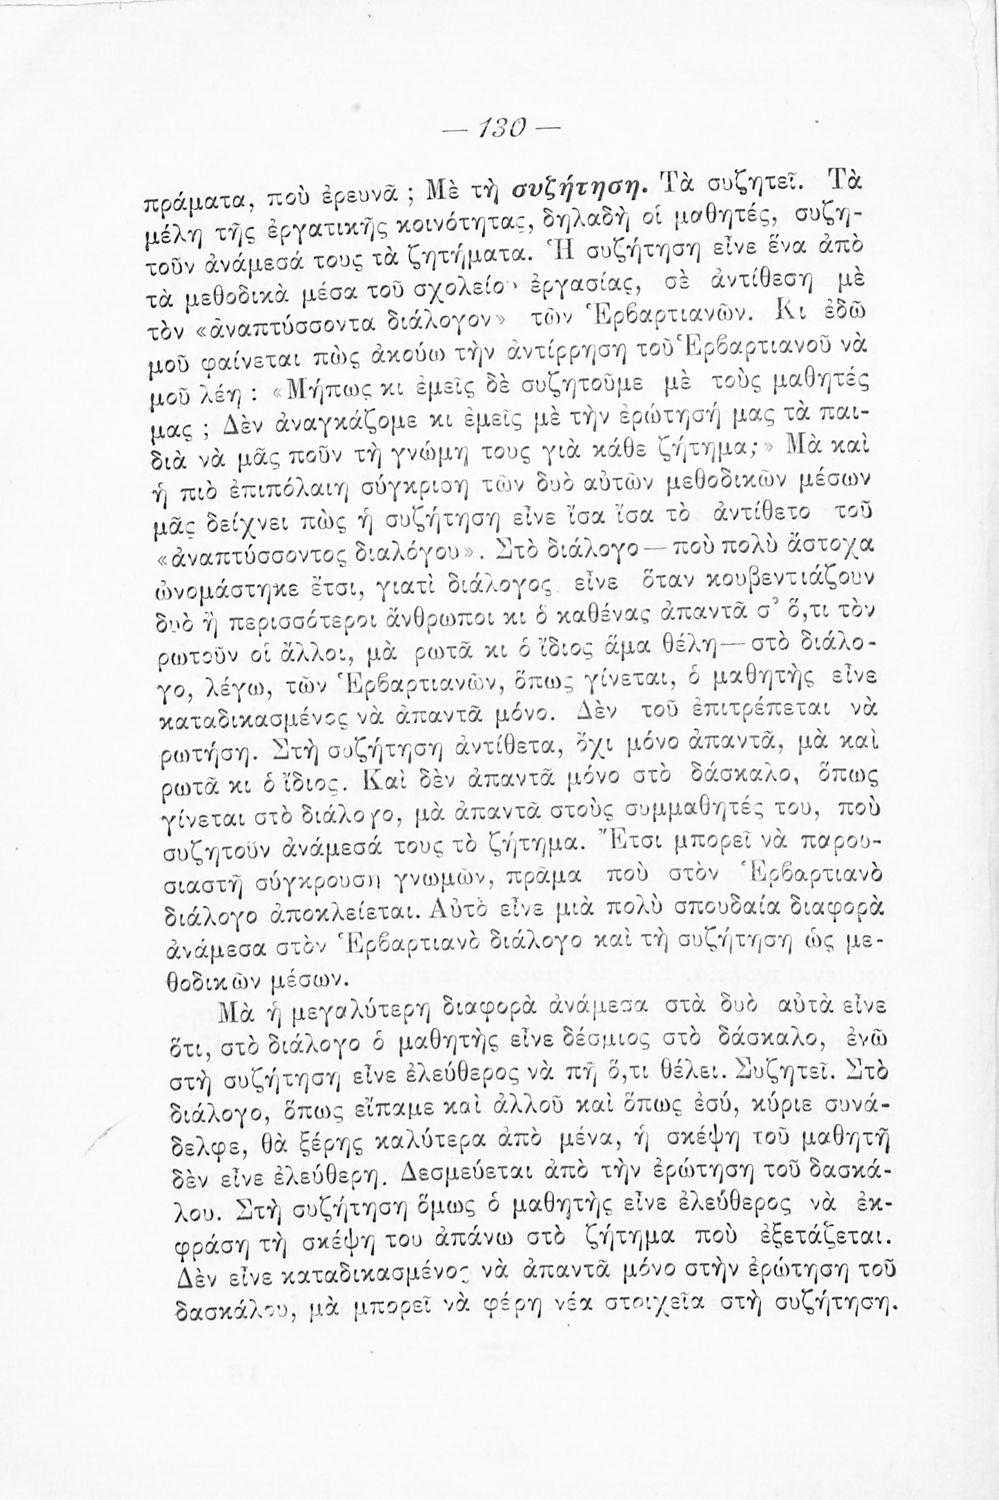 — 130 —
πράματα, ποὺ ἐρευνᾶ ; Μὲ τὴ συζήτηση. Τὰ συζητεῖ. Τὰ
μέλη τῆς ἐργατικῆς κοινότητας, δηλαδὴ οἱ μαθητές, συζη-
τοῦν ἀνάμεσά τους τὰ ζητήματα. Ἡ συζήτηση εἶνε ἕνα ἀπὸ
τὰ μεθοδικὰ μέσα τοῦ σχολείου ἐργασίας, σὲ ἀντίθεση μὲ
τὸν «ἀναπτύσσοντα διάλογον» τῶν Ἑρβαρτιανῶν. Κι ἐδῶ
μοῦ φαίνεται πὼς ἀκούω τὴν ἀντίρρηση τοῦ Ἑρβαρτιανοῦ νὰ
μοῦ λέη : «Μήπως κι ἐμεῖς δὲ συζητοῦμε μὲ τοὺς μαθητές
μας ; Δὲν ἀναγκάζομε κι ἐμεῖς μὲ τὴν ἐρώτησή μας τὰ παι-
διὰ νὰ μᾶς ποῦν τὴ γνώμη τους γιὰ κάθε ζήτημα;» Μὰ καὶ
ἡ πιὸ ἐπιπόλαιη σύγκριση τῶν δυὸ αὐτῶν μεθοδικῶν μέσων
μᾶς δείχνει πὼς ἡ συζήτηση εἶνε ἴσα ἴσα τὸ ἀντίθετο τοῦ
«ἀναπτύσσοντος διαλόγου». Στὸ διάλογο — ποὺ πολὺ ἄστοχα
ὠνομάστηκε ἔτσι, γιατὶ διάλογος εἶνε ὅταν κουβεντιάζουν
δυὸ ἢ περισσότεροι ἄνθρωποι κι ὁ καθένας ἀπαντᾶ σ᾽ ὅ,τι τὸν
ρωτοῦν οἱ ἄλλοι, μὰ ρωτᾶ κι ὁ ἴδιος ἅμα θέλη — στὸ διάλο-
γο, λέγω, τῶν Ἑρβαρτιανῶν, ὅπως γίνεται, ὁ μαθητὴς εἶνε
καταδικασμένος νὰ ἀπαντᾶ μόνο. Δὲν τοῦ ἐπιτρέπεται νὰ
ρωτήση. Στὴ συζήτηση ἀντίθετα, ὄχι μόνο ἀπαντᾶ, μὰ καὶ
ρωτᾶ κι ὁ ἴδιος. Καὶ δὲν ἀπαντᾶ μόνο στὸ δάσκαλο, ὅπως
γίνεται στὸ διάλογο, μὰ ἀπαντᾶ στοὺς συμμαθητές του, ποὺ
συζητοῦν ἀνάμεσά τους τὸ ζήτημα. Ἔτσι μπορεῖ νὰ παρου-
σιαστῆ σύγκρουση γνωμῶν, πρᾶμα ποὺ στὸν Ἑρβαρτιανὸ
διάλογο ἀποκλείεται. Αὐτὸ εἶνε μιὰ πολὺ σπουδαία διαφορὰ
ἀνάμεσα στὸν Ἑρβαρτιανὸ διάλογο καὶ τὴ συζήτηση ὡς με-
θοδικῶν μέσων.
Μὰ ἡ μεγαλύτερη διαφορὰ ἀνάμεσα στὰ δυὸ αὐτὰ εἶνε
ὅτι, στὸ διάλογο ὁ μαθητὴς εἶνε δέσμιος στὸ δάσκαλο, ἐνῶ
στὴ συζήτηση εἶνε ἐλεύθερος νὰ πῆ ὅ,τι θέλει. Συζητεῖ. Στὸ
διάλογο, ὅπως εἴπαμε καὶ ἀλλοῦ καὶ ὅπως ἐσύ, κύριε συνά-
δελφε, θὰ ξέρης καλύτερα ἀπὸ μένα, ἡ σκέψη τοῦ μαθητῆ
δὲν εἶνε ἐλεύθερη. Δεσμεύεται ἀπὸ τὴν ἐρώτηση τοῦ δασκά-
λου. Στὴ συζήτηση ὅμως ὁ μαθητὴς εἶνε ἐλεύθερος νὰ ἐκ-
φράση τὴ σκέψη του ἀπάνω στὸ ζήτημα ποὺ ἐξετάζεται.
Δὲν εἶνε καταδικασμένος νὰ ἀπαντᾶ μόνο στὴν ἐρώτηση τοῦ
δασκάλου, μὰ μπορεῖ νὰ φέρη νέα στοιχεῖα στὴ συζήτηση.